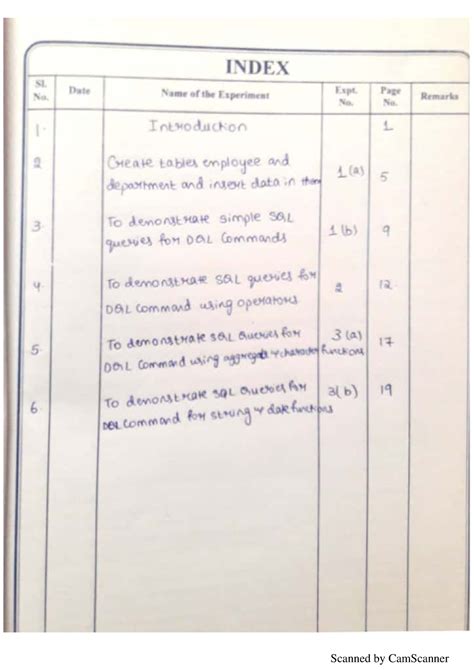 INDEX
Sl. No. Date Name of the Experiment Expt. No. Page No. Remarks
1. Introduction 1
2 Create tables employee and 1(a) 5
department and insert data in them
3. To demonstrate simple SQL 1(b) 9
queries for DQL Commands
4. To demonstrate SQL queries for 2 12
DQL command using operators
5. To demonstrate SQL Queries for 3(a) 17
DQL Command using aggregate & character functions
6. To demonstrate SQL Queries for 3(b) 19
DQL command for string & date functions
Scanned by CamScanner